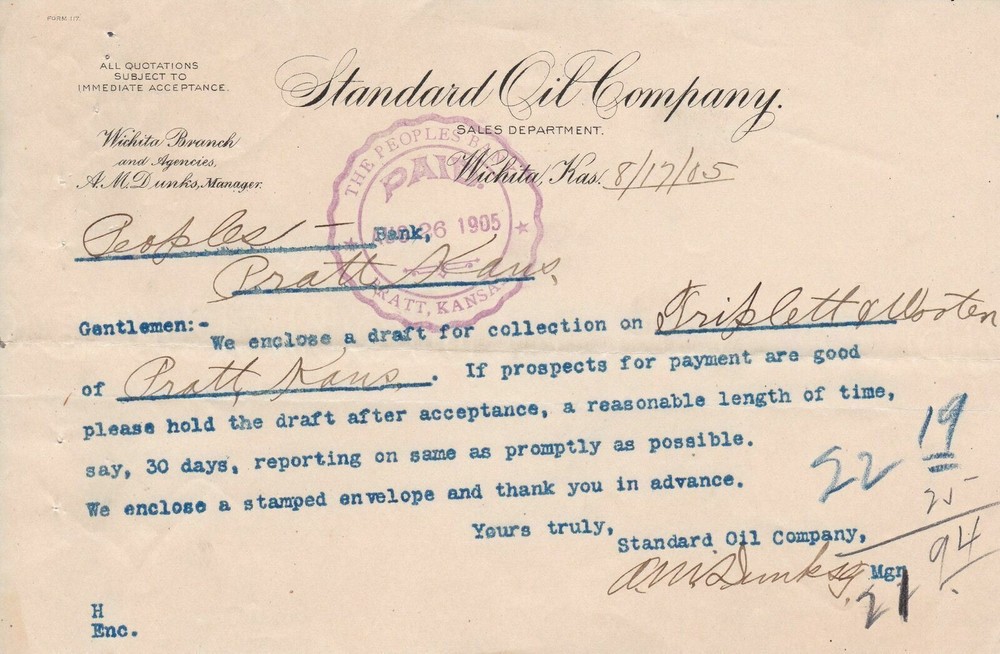 FORM 117.
ALL QUOTATIONS
SUBJECT TO
IMMEDIATE ACCEPTANCE.
Standard Oil Company.
SALES DEPARTMENT.
Wichita Branch
and Agencies,
A. M. Dunks, Manager.
Wichita, Kas. 8/17/05
THE PEOPLES BANK
PAID.
AUG 26 1905
PRATT, KANSAS
Peoples - Bank,
Pratt, Kans,
Gentlemen:-
We enclose a draft for collection on Triplett & Wooten
of Pratt, Kans. If prospects for payment are good
please hold the draft after acceptance, a reasonable length of time,
say, 30 days, reporting on same as promptly as possible.
We enclose a stamped envelope and thank you in advance.
Yours truly,
Standard Oil Company,
A. M. Dunks Mgr
22 19
25
21 94
H
Enc.